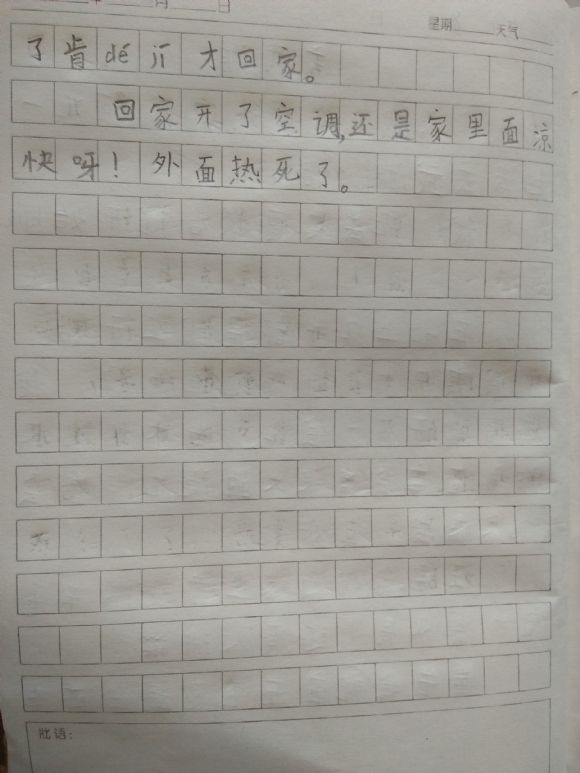 月 日
星期 天气
了肯dé jī才回家。
回家开了空调,还是家里面凉
快呀!外面热死了。
批语: